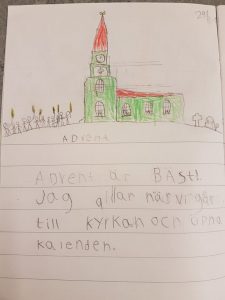 29/
ADVENT
ADVENT är BÄST!
Jag gillar när vi går
till kyrkan och öpna
kalenden.